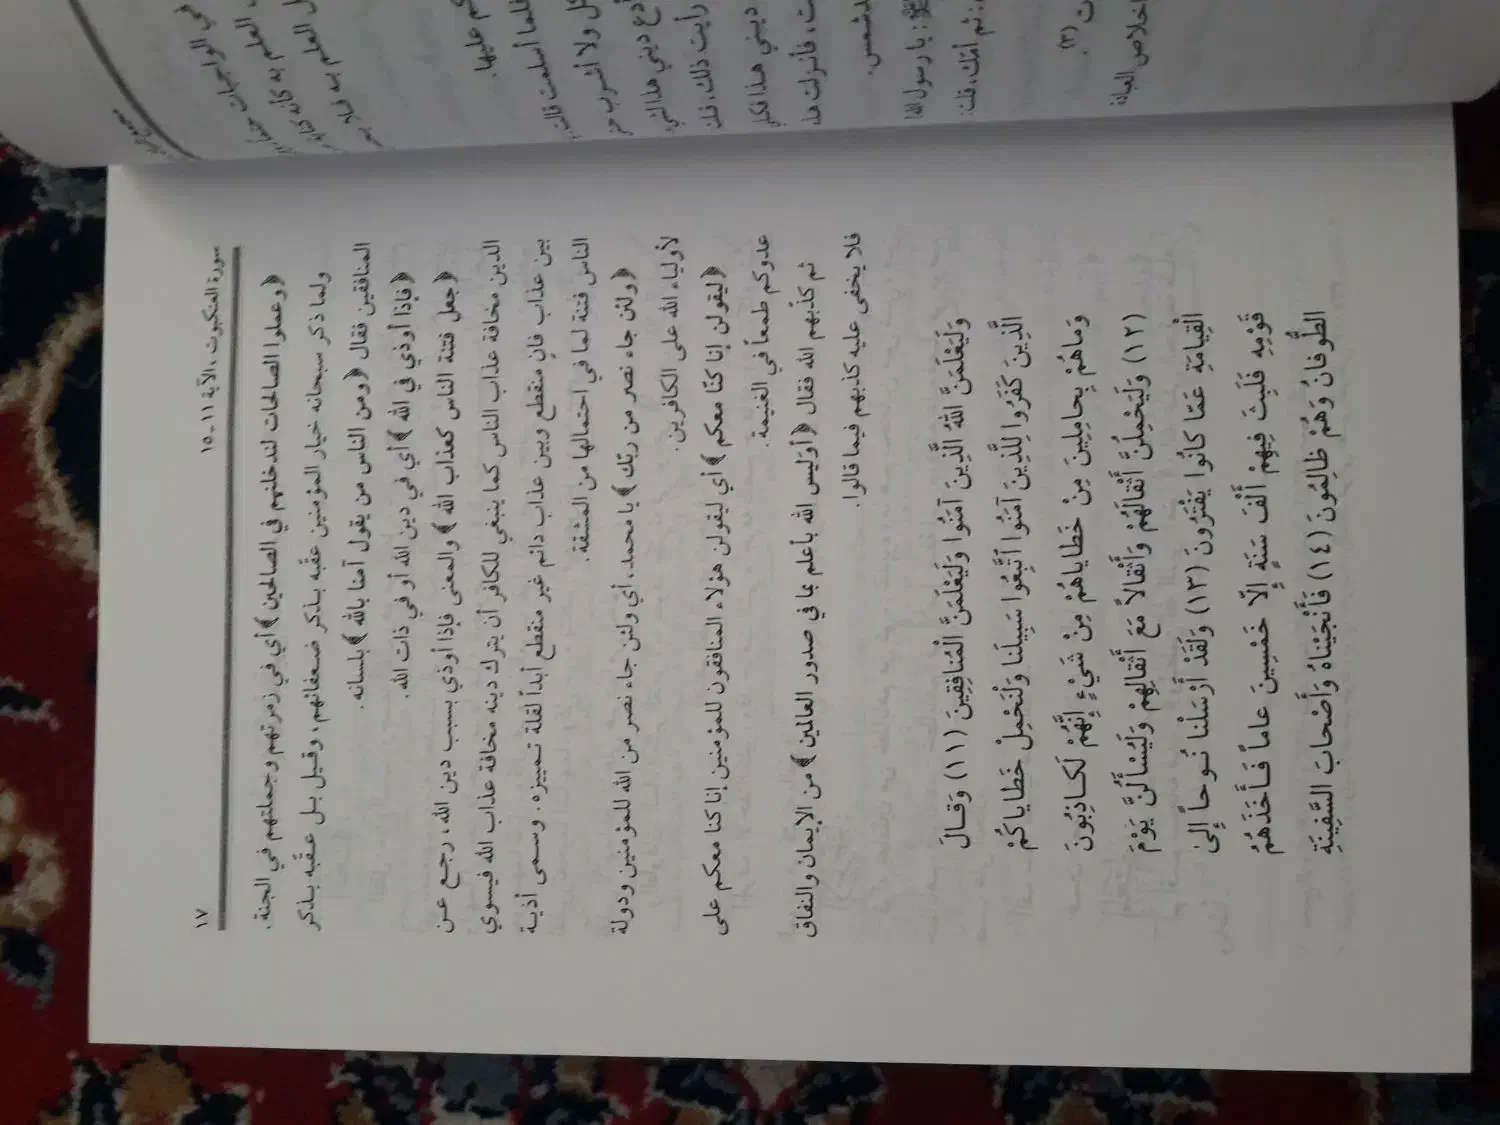 سورة العنكبوت، الآية ١١ـ١٥
١٧
﴿وعملوا الصالحات لندخلنهم في الصالحين﴾ أي في زمرتهم وجملتهم في الجنة.
ولما ذكر سبحانه خيار المؤمنين عقّبه بذكر ضعفائهم، وقيل بل عقّبه بذكر
المنافقين فقال ﴿ومن الناس من يقول آمنا بالله﴾ بلسانه.
﴿فإذا أوذي في الله﴾ أي في دين الله أو في ذات الله.
﴿جعل فتنة الناس كعذاب الله﴾ والمعنى فإذا أوذي بسبب دين الله، رجع عن
الدين مخافة عذاب الناس كما ينبغي للكافر أن يترك دينه مخافة عذاب الله فيسوي
بين عذاب فانٍ منقطع وبين عذاب دائم غير منقطع أبداً لقلة تمييزه. وسمى أذية
الناس فتنة لما في احتمالها من المشقة.
﴿ولئن جاء نصر من ربّك﴾ يا محمد، أي ولئن جاء نصر من الله للمؤمنين ودولة
لأولياء الله على الكافرين.
﴿ليقولن إنا كنّا معكم﴾ أي ليقولن هؤلاء المنافقون للمؤمنين إنا كنا معكم على
عدوكم طمعاً في الغنيمة.
ثم كذّبهم الله فقال ﴿أوَليس الله بأعلم بما في صدور العالمين﴾ من الإيمان والنفاق
فلا يخفى عليه كذبهم فيما قالوا.
وَلَيَعْلَمَنَّ اللهُ الَّذِينَ آمَنُوا وَلَيَعْلَمَنَّ الْمُنافِقِينَ (١١) وَقالَ
الَّذِينَ كَفَرُوا لِلَّذِينَ آمَنُوا اَتَّبِعُوا سَبِيلَنا وَلْنَحْمِلْ خَطاياكُمْ
وَماهُمْ بِحامِلِينَ مِنْ خَطاياهُمْ مِنْ شَيْءٍ إِنَّهُمْ لَكاذِبُونَ
(١٢) وَلَيَحْمِلُنَّ أَثْقالَهُمْ وَأَثْقالاً مَعَ أَثْقالِهِمْ وَلَيُسْأَلُنَّ يَوْمَ
الْقِيامَةِ عَمّا كانُوا يَفْتَرُونَ (١٣) وَلَقَدْ أَرْسَلْنا نُوحاً إِلىٰ
قَوْمِهِ فَلَبِثَ فِيهِمْ أَلْفَ سَنَةٍ إِلّا خَمْسِينَ عاماً فَأَخَذَهُمُ
الطُّوفانُ وَهُمْ ظالِمُونَ (١٤) فَأَنْجَيْناهُ وَأَصْحابَ السَّفِينَةِ
في الواجبات
العلم به كأنه
العلم به
كم عليها.
فلما أسلمت قالت
ولا أشرب
دع ديني هذا
رأيت ذلك،
ديني هذا فكلي
ت، فأنزلت
للشمس.
: يا رسول الله
، ثم أمّك، قلت:
ت (٣).
إخلاص العبادة